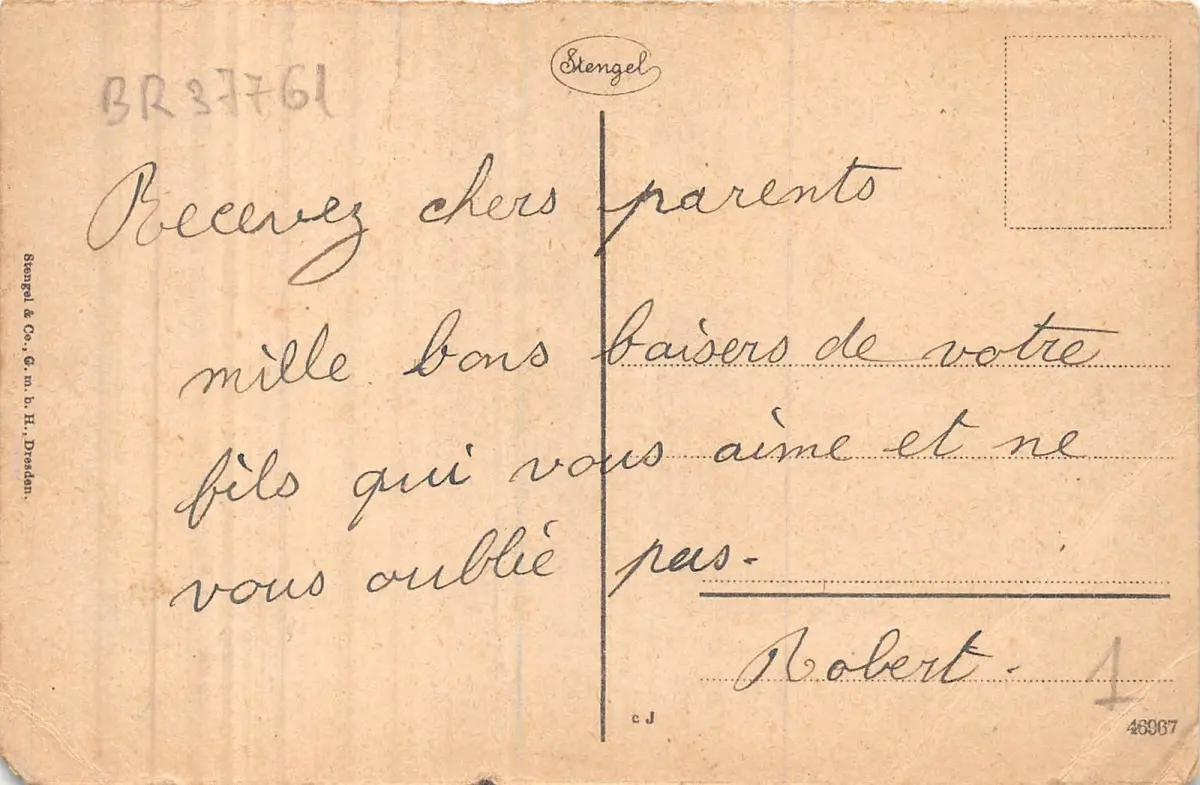 Stengel
BR 37761
Recevez chers parents
mille bons baisers de votre
fils qui vous aime et ne
vous oublié pas.
Robert.
1
c J
46967
Stengel & Co., G. m. b. H., Dresden.